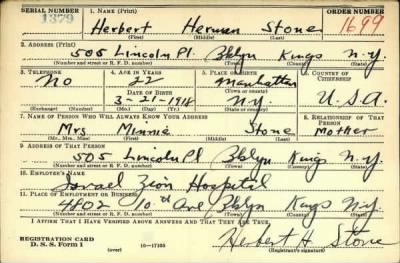 SERIAL NUMBER 1. NAME (Print) ORDER NUMBER
1379 Herbert Herman Stone 1699
(First) (Middle) (Last)
2. ADDRESS (Print)
505 Lincoln Pl. Bklyn Kings N.Y.
(Number and street or R. F. D. number) (Town) (County) (State)
3. TELEPHONE 4. AGE IN YEARS 5. PLACE OF BIRTH 6. COUNTRY OF CITIZENSHIP
No 22 Manhattan
DATE OF BIRTH (Town or county)
3-21-1918 N.Y. U.S.A.
(Exchange) (Number) (Mo.) (Day) (Yr.) (State or country)
7. NAME OF PERSON WHO WILL ALWAYS KNOW YOUR ADDRESS 8. RELATIONSHIP OF THAT PERSON
Mrs Minnie Stone Mother
(Mr., Mrs., Miss) (First) (Middle) (Last)
9. ADDRESS OF THAT PERSON
505 Lincoln Pl Bklyn Kings N.Y.
(Number and street or R. F. D. number) (Town) (County) (State)
10. EMPLOYER'S NAME
Israel Zion Hospital
11. PLACE OF EMPLOYMENT OR BUSINESS
4802 10th Ave Bklyn Kings N.Y.
(Number and street or R. F. D. number) (Town) (County) (State)
I AFFIRM THAT I HAVE VERIFIED ABOVE ANSWERS AND THAT THEY ARE TRUE.
REGISTRATION CARD
D. S. S. FORM 1 (over) 16-17105 Herbert H. Stone
(Registrant's signature)